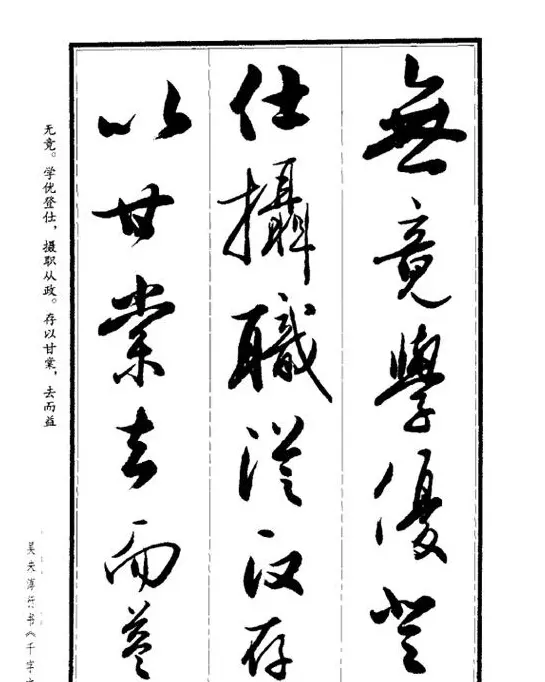 無竟學優登
仕攝職從政存
以甘棠去而益
无竟。学优登仕，摄职从政。存以甘棠，去而益
行书《千字文